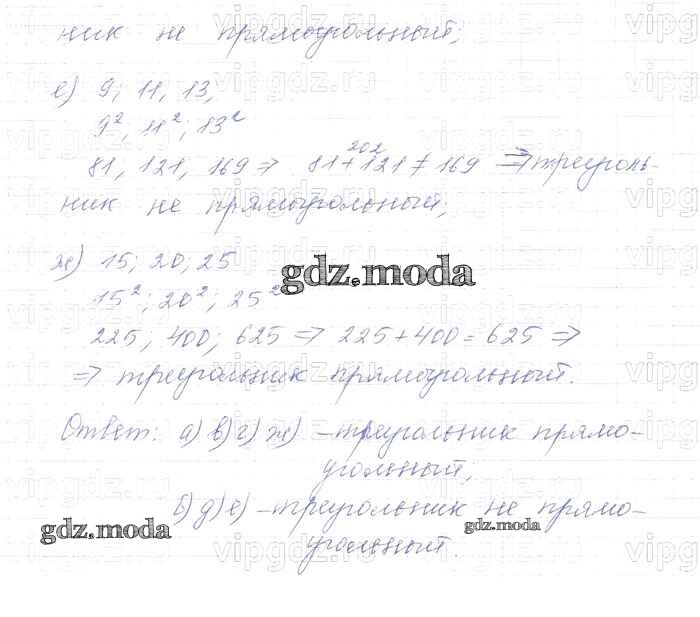 ник не прямоугольный;
е) 9; 11, 13,
9², 11²; 13²
202
81, 121, 169 ⇒ 81+121≠169 ⇒ треуголь-
ник не прямоугольный;
ж) 15; 20; 25
gdz.moda
15²; 20²; 25²
225; 400; 625 ⇒ 225+400=625 ⇒
⇒ треугольник прямоугольный.
Ответ: а) в) г) ж) – треугольник прямо-
угольный;
б) д) е) – треугольник не прямо-
gdz.moda
gdz.moda
угольный.
vipgdz.ru